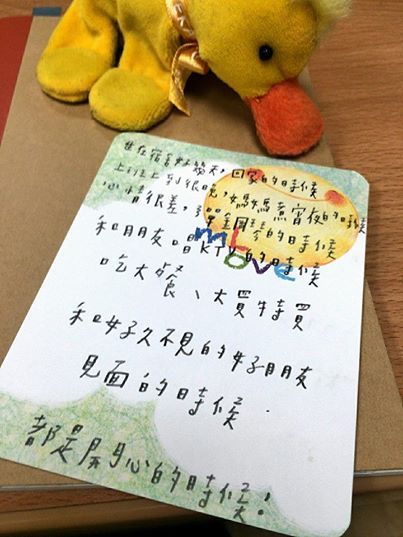 住在宿舍好幾天，回家的時候
上班上到很晚，媽媽煮宵夜的時候
心情很差，彈鋼琴的時候
和朋友唱KTV的時候
mL
ove
吃大餐、大買特買
和好久不見的好朋友
見面的時候．
都是開心的時候！